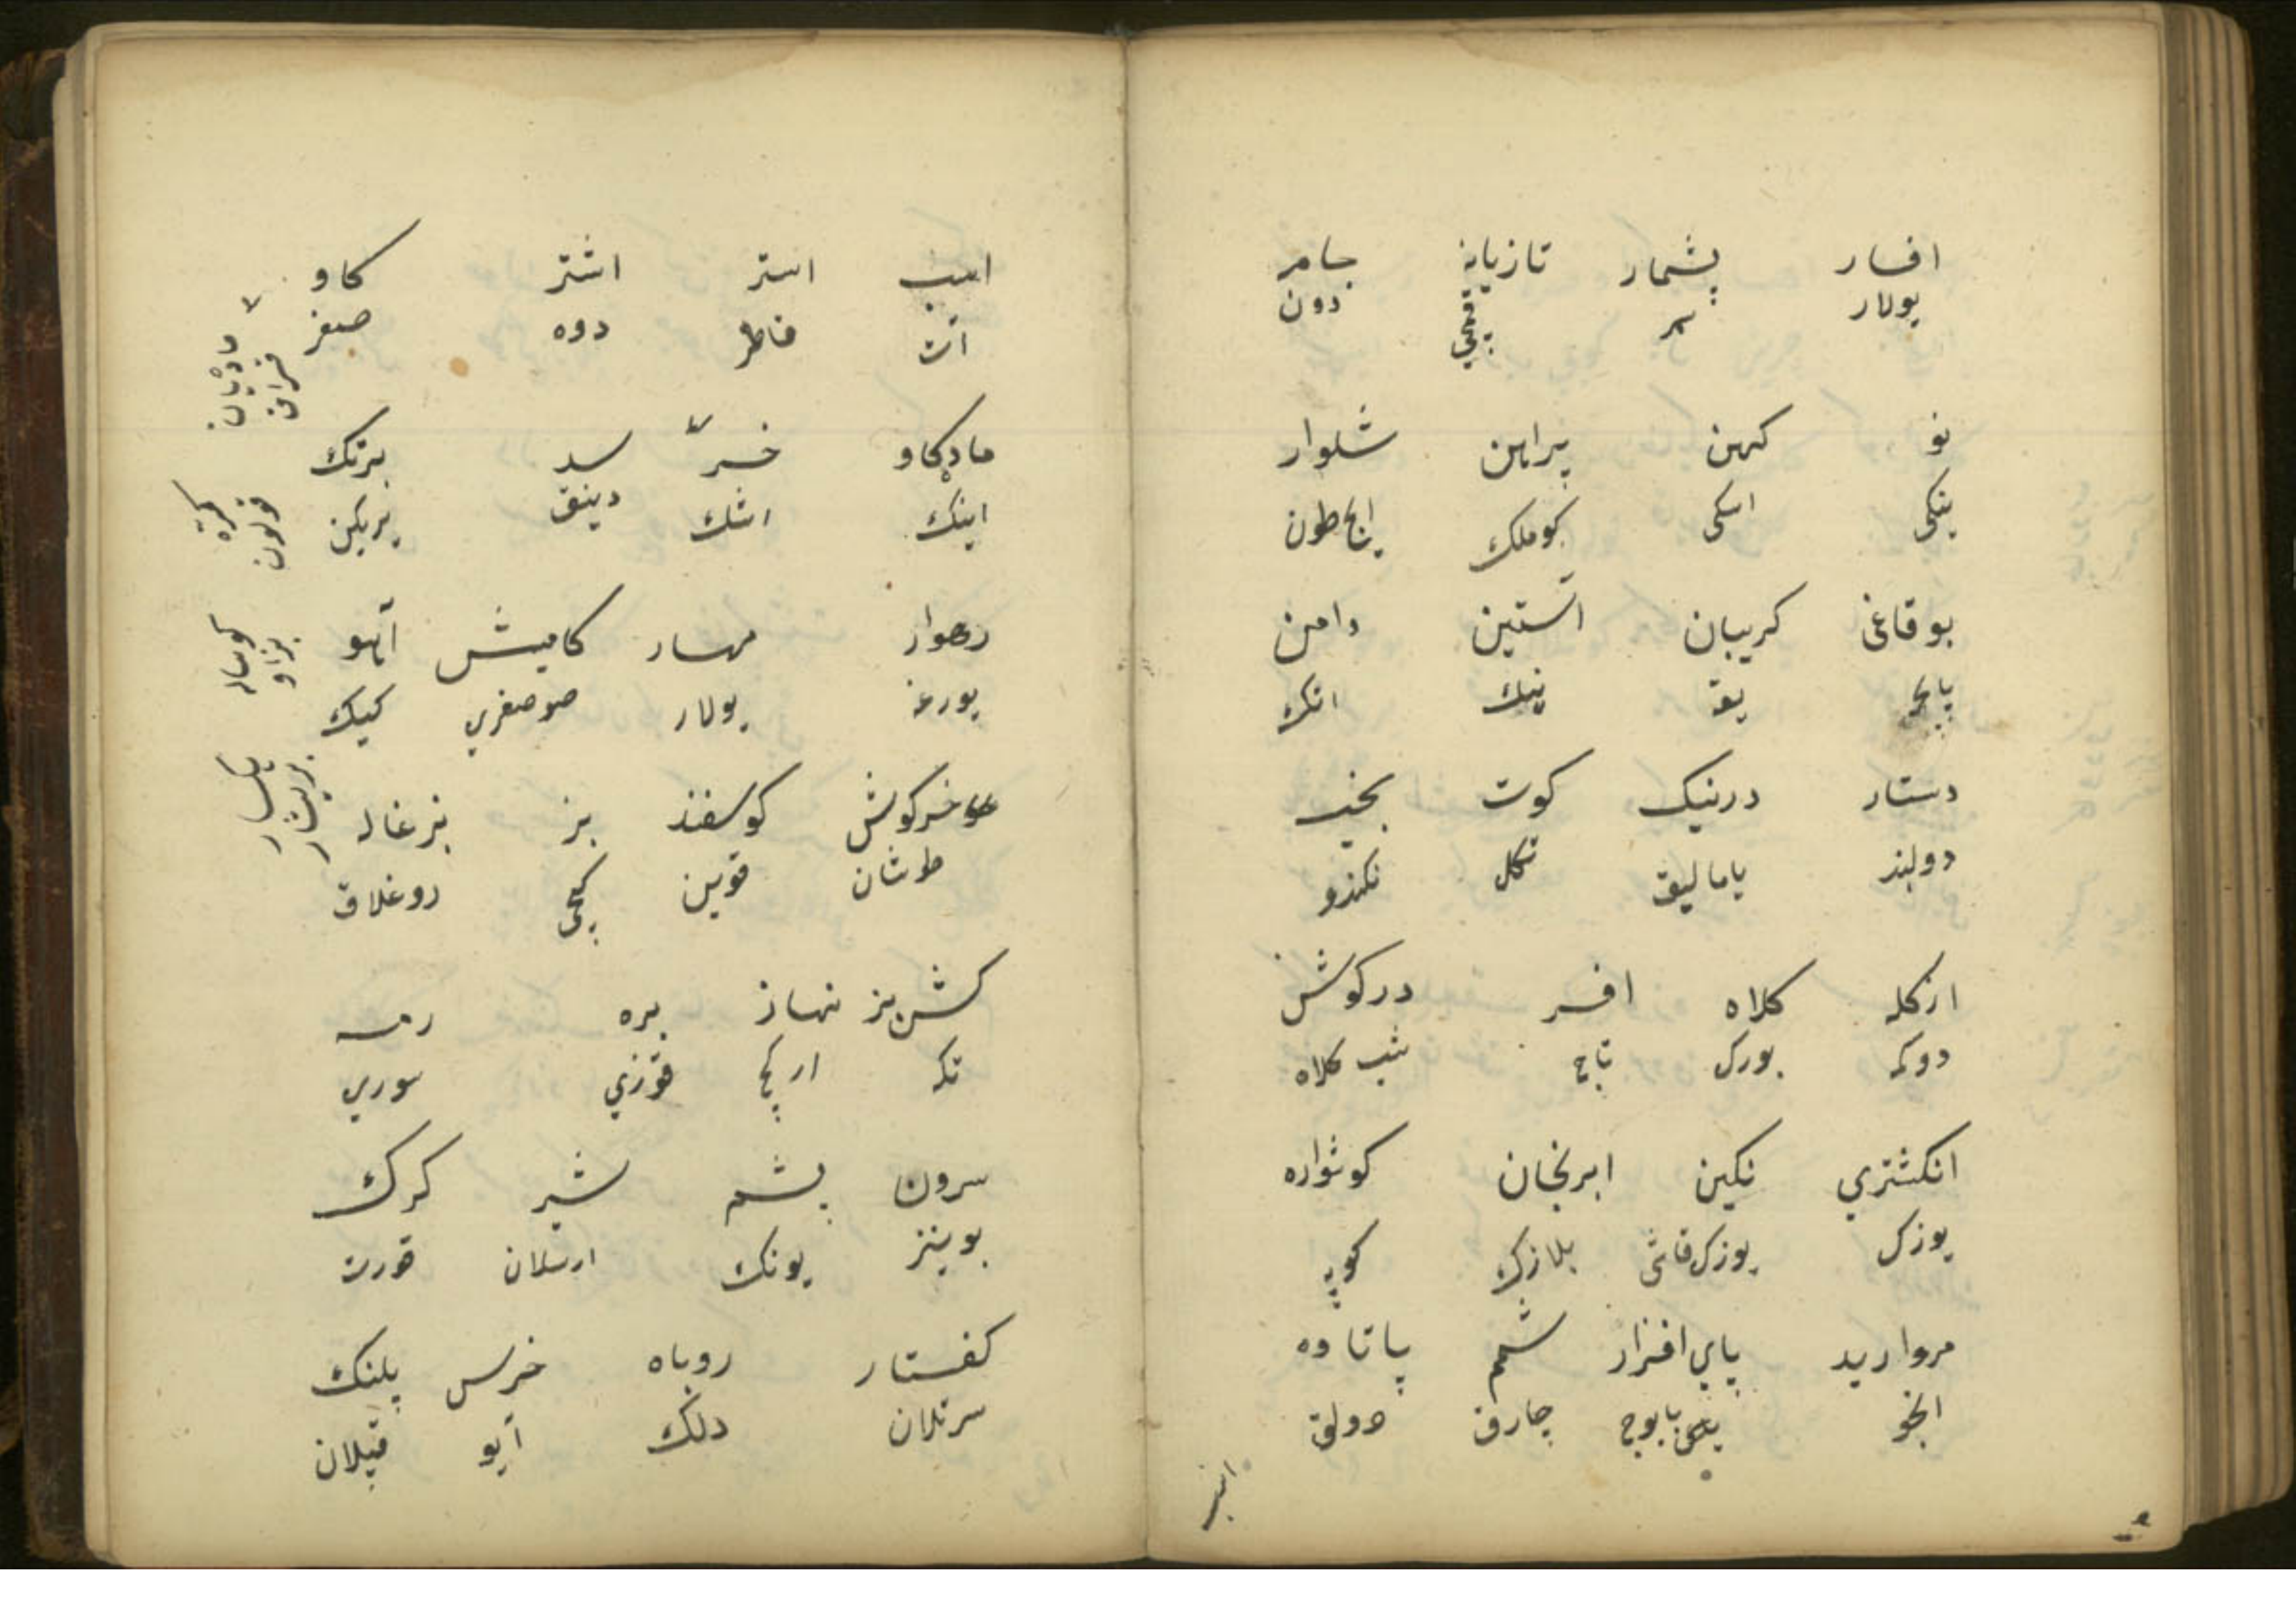 افسار پشمار تازیانه جامه
یولار قمچی دون
نو کهن پیراهن شلوار
ینکی اسکی کوملك ایچ طون
بوقاغی کریبان آستین دامن
یقه ینك اتك
دستار درنیك کوت بخیه
دولبند یامالیق تکل تکندو
ازکله کلاه افسر درکوش
دوکمه بورك تاج شب کلاه
انکشتري نکین ابرنجان کوشواره
یوزك یوزك قاشی بلازك کوپه
مروارید پاي افزار پاتاوه
انجو پابوج چارق دولق
اسب
اسب استر اشتر کاو
آت قاطر دوه صغر
مادیان
قسراق
مادهکاو خر برتك
اینك اشك
کره
قولون
رهوار مهار کامیش آهو
یورغه یولار صوصغري کیك
کوساله
بزاو
خرکوش کوسفند بز بزغاله
طوشان قوین کچی اوغلاق
کشن بز نهاز بره رمه
تکه ارکج قوزي سوري
سرون پشم شیر کرك
بوینز یونك ارسلان قورت
کفتار روباه خرس پلنك
سرتلان دلك آیو قپلان